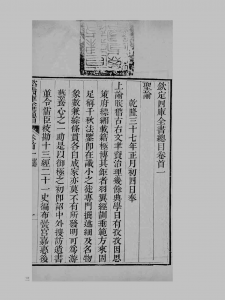 欽定四庫全書總目卷首一
聖諭
乾隆三十七年正月初四日奉
上諭朕稽古右文聿資治理幾餘典學日有孜孜因思
策府縹緗載籍極博其鉅者羽翼經訓垂範方來固
足稱千秋法鑒即在識小之徒專門撰述細及名物
象數兼綜條貫各自成家亦莫不有所發明可為游
藝養心之一助是以御極之初即詔中外搜訪遺書
並令儒臣校勘十三經二十一史徧布黌宮嘉惠後